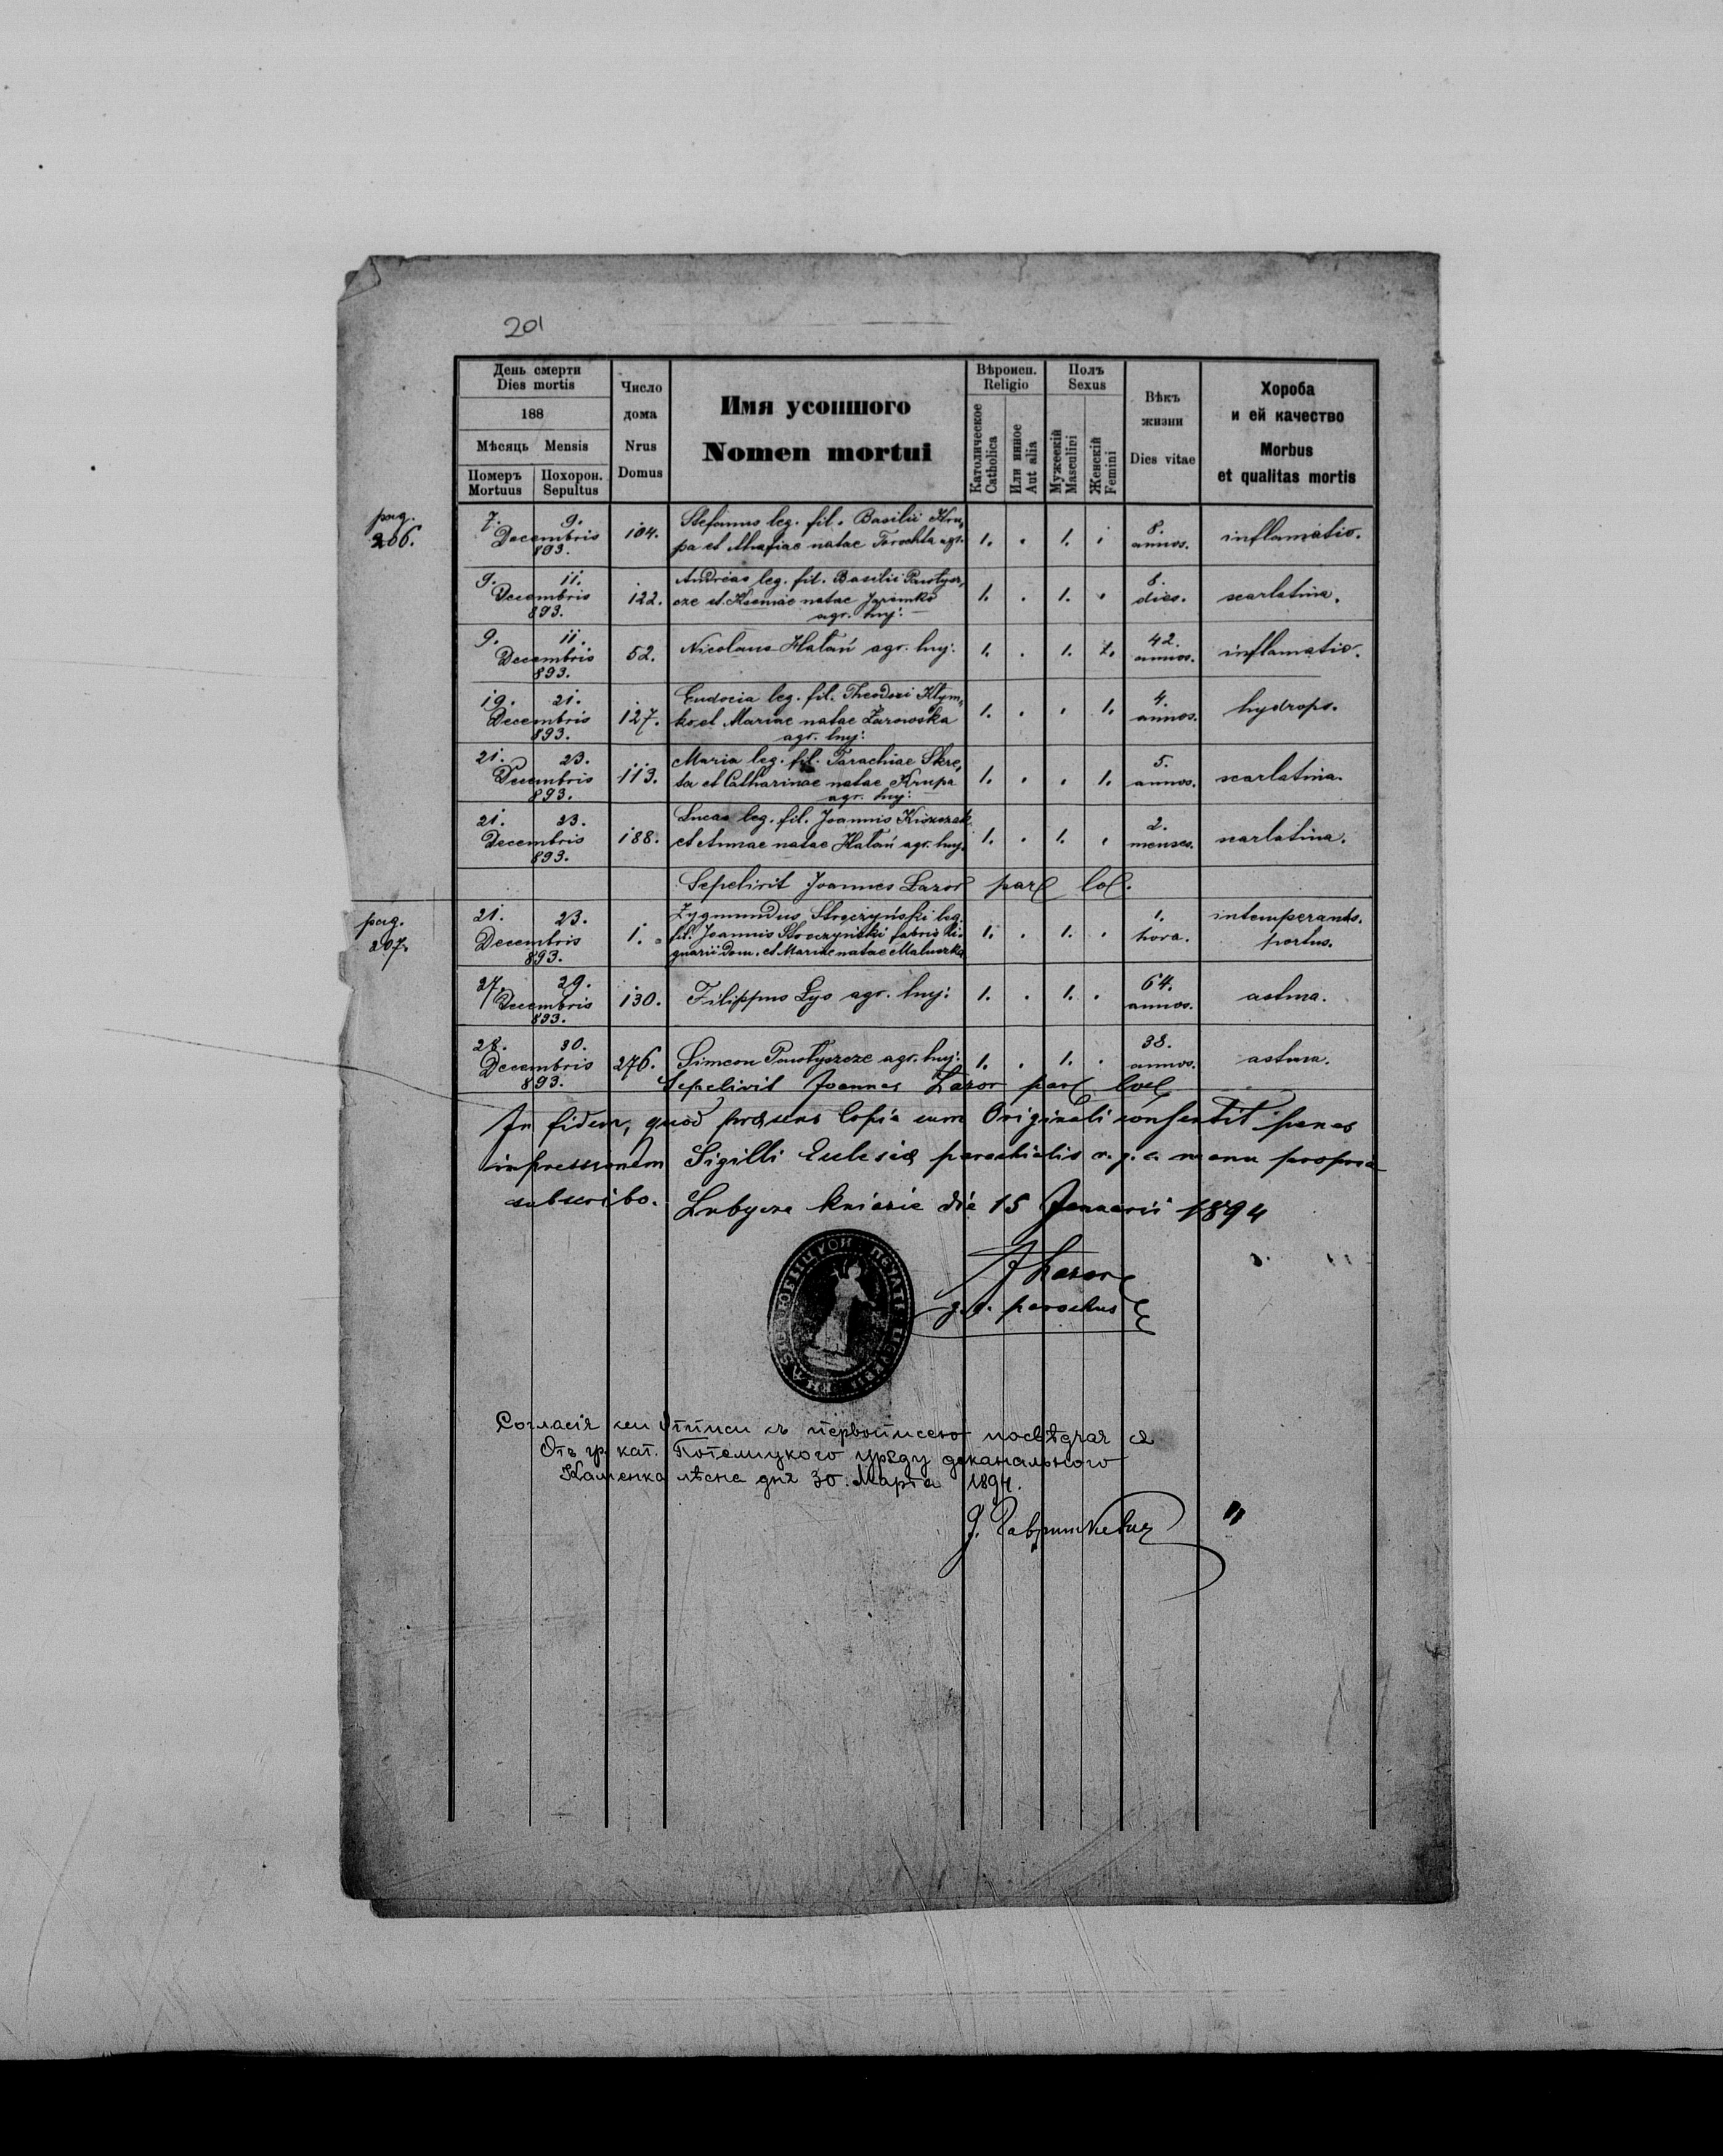 201
День смерти
Dies mortis
188
Мѣсяць Mensis
Померъ Похорон.
Mortuus Sepultus
Число
дома
Nrus
Domus
Имя усопшого
Nomen mortui
Вѣроисп.
Religio
Католическое
Catholica
Или инное
Aut alia
Полъ
Sexus
Мужескій
Masculini
Женскій
Femini
Вѣкъ
жизни
Dies vitae
Хороба
и ей качество
Morbus
et qualitas mortis
pag.
206.
7. 9.
Decembris
893.
104.
Stefanus leg. fil. Basilii Kru,
pa et natae Torochta agr.
1. . 1. .
8.
annos.
inflamatio.
9. 11.
Decembris
893.
122.
Andreas leg. fil. Basilii Pawłysz,
cze et Kseniae natae Jaremko
agr. huj:
1. . 1. .
8.
dies.
scarlatina.
9. 11.
Decembris
893.
52.
Nicolaus Hałań agr. huj:
1. . 1. 1.
42.
annos.
inflamatio.
19. 21.
Decembris
893.
127.
Eudocia leg. fil. Theodori Klym,
ko et Mariae natae Żurowska
agr. huj:
1. . . 1.
4.
annos.
hydrops.
21. 23.
Decembris
893.
113.
Maria leg. fil. Tarachiae Skre,
ta et Catharinae natae Krupa
agr. huj:
1. . . 1.
5.
annos.
scarlatina.
21. 23.
Decembris
893.
188.
Lucas leg. fil. Joannis Kiszczak
et Annae natae Hałań agr. huj.
1. . 1. .
2.
menses.
scarlatina.
Sepelivit Joannes Lazor par loc.
pag.
207.
21. 23.
Decembris
893.
1.
Zygmundus Stręczyński leg.
fil. Joannis Stręczyński fabris li,
gnarii dom. et Mariae natae Maluszka
1. . 1. .
1.
hora.
intemperants.
partus.
27. 29.
Decembris
893.
130.
Filippus Lys agr. huj:
1. . 1. .
64.
annos.
astma.
28. 30.
Decembris
893.
276.
Simeon Pawłyszcze agr. huj:
1. . 1. .
38.
annos.
astma.
Sepelivit Joannes Lazor par loc
In fidem, quod praesens Copia cum Originali consentit penes
impressionem Sigilli Eclesiae parochialis r. g. c. manu propria
subscribo.
Lubycza kniazie die 15 Januarii 1894
J Lazor
g. c. parochus
Согласія сеи Отписи съ первописею посвѣдчая ся
Отъ гр. кат. Потелицкого уряду деканального
Каменка лѣсна дня 30. Марта 1894.